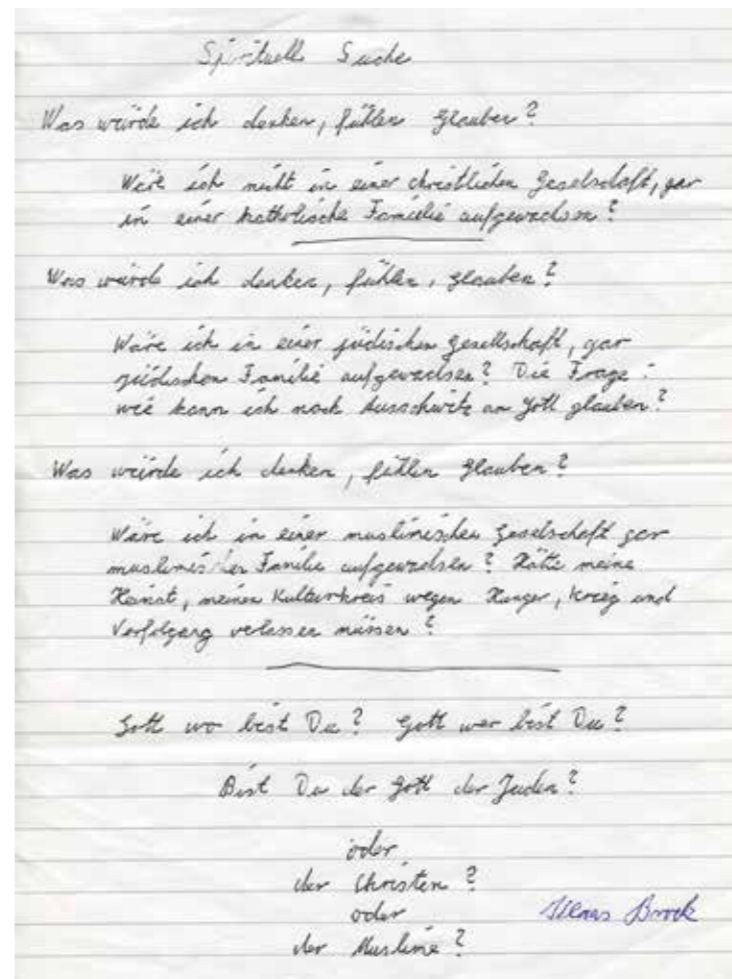 Spirituell Suche
Was würde ich denken, fühlen glauben?
Wäre ich nicht in einer christlichen Geselschaft, gar
in einer katholische Familie aufgewachsen?
Was würde ich denken, fühlen, glauben?
Wäre ich in einer jüdischen Gesellschaft, gar
jüdischen Familie aufgewachsen? Die Frage:
wie kann ich nach Ausschwitz an Gott glauben?
Was würde ich denken, fühlen glauben?
Wäre ich in einer muslimischen Geselschaft gar
muslimischer Familie aufgewachsen? Hätte meine
Heimat, meinen Kulturkreis wegen Hunger, Krieg und
Verfolgung verlassen müssen?
Gott wo bist Du? Gott wer bist Du?
Bist Du der Gott der Juden?
oder
der Christen?
oder
der Muslime?
Brock